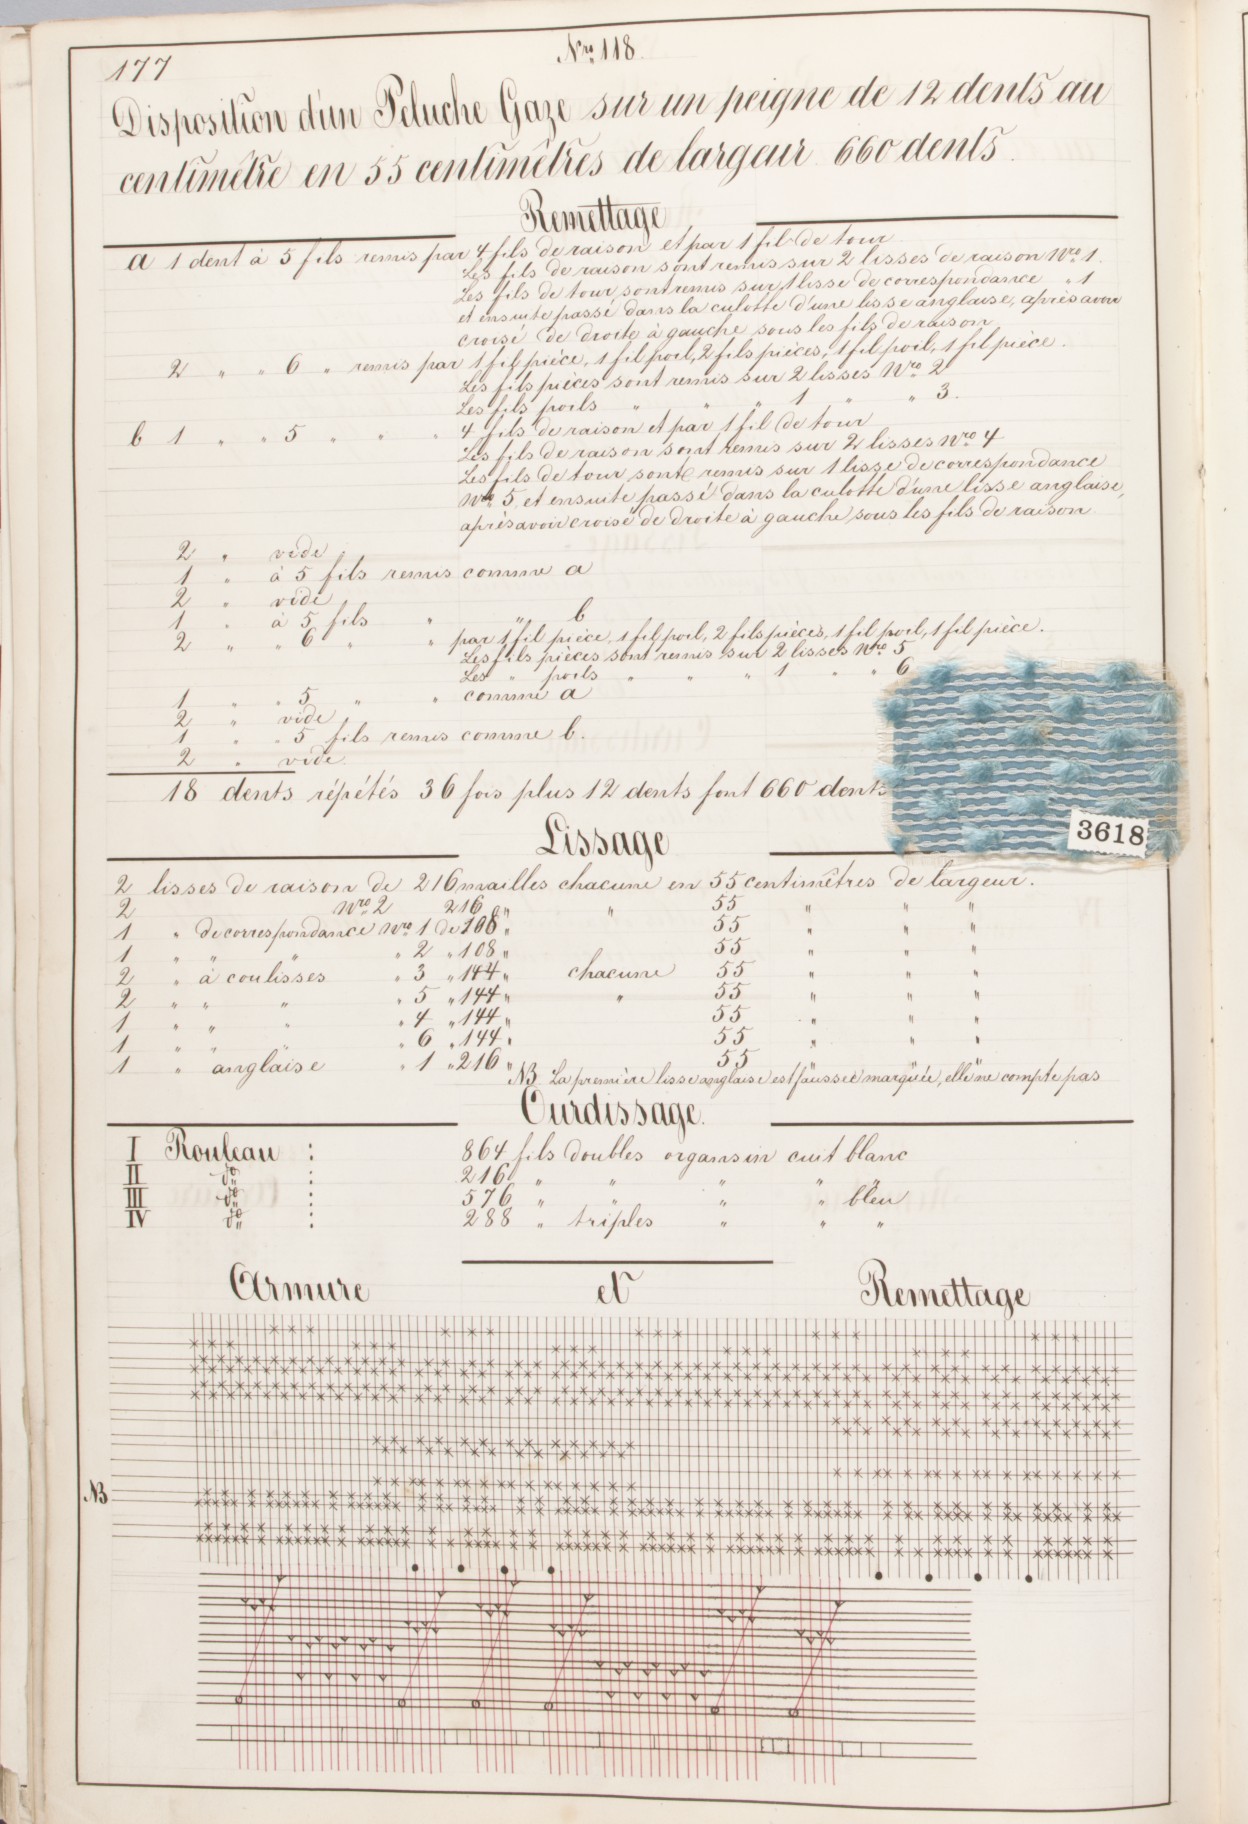 177
Nro. 118.
Disposition d'un Peluche Gaze sur un peigne de 12 dents au
centimètre en 55 centimètres de largeur. 660 dents.
Remettage
a 1 dent à 5 fils remis par 4 fils de raison et par 1 fil de tour
Les fils de raison sont remis sur 2 lisses de raison Nro 1.
Les fils de tour sont remis sur 1 lisse de correspondance " 1
et ensuite passé dans la culotte d'une lisse anglaise, après avoir
croisé de droite à gauche sous les fils de raison
2 " " 6 " remis par 1 fil pièce, 1 fil poil, 2 fils pièces, 1 fil poil, 1 fil pièce.
Les fils pièces sont remis sur 2 lisses Nro 2
Les fils poils " " " 1 " " 3.
b 1 " " 5 " " " 4 fils de raison et par 1 fil de tour
Les fils de raison sont remis sur 2 lisses Nro 4
Les fils de tour sont remis sur 1 lisse de correspondance
Nro 5, et ensuite passé dans la culotte d'une lisse anglaise,
après avoir croisé de droite à gauche sous les fils de raison
2 " vide
1 " à 5 fils remis comme a
2 " vide
1 " à 5 fils " " b
2 " " 6 " " par 1 fil pièce, 1 fil poil, 2 fils pièces, 1 fil poil, 1 fil pièce.
Les fils pièces sont remis sur 2 lisses Nro 5
Les " poils " " " 1 " " 6
1 " " 5 " " comme a
2 " vide
1 " " 5 fils remis comme b.
2 " vide.
18 dents répétés 36 fois plus 12 dents font 660 dents
3618
Lissage
2 lisses de raison de 216 mailles chacune en 55 centimètres de largeur.
2 Nro 2 216 " " 55 " " "
1 " de correspondance Nro 1 de 108 " 55 " " "
1 " " " " 2 " 108 " 55 " " "
2 " à coulisses " 3 " 144 " chacune 55 " " "
2 " " " " 5 " 144 " " 55 " " "
1 " " " " 4 " 144 " 55 " " "
1 " " " " 6 " 144 " 55 " " "
1 " anglaise " 1 " 216 " 55 " " "
NB La première lisse anglaise est faussée marquée, elle ne compte pas
Ourdissage.
I Rouleau : 864 fils doubles organsin cuit blanc
II do : 216 " " " " "
III do : 576 " " " " bleu
IV do : 288 " triples " " "
Armure et Remettage
NB